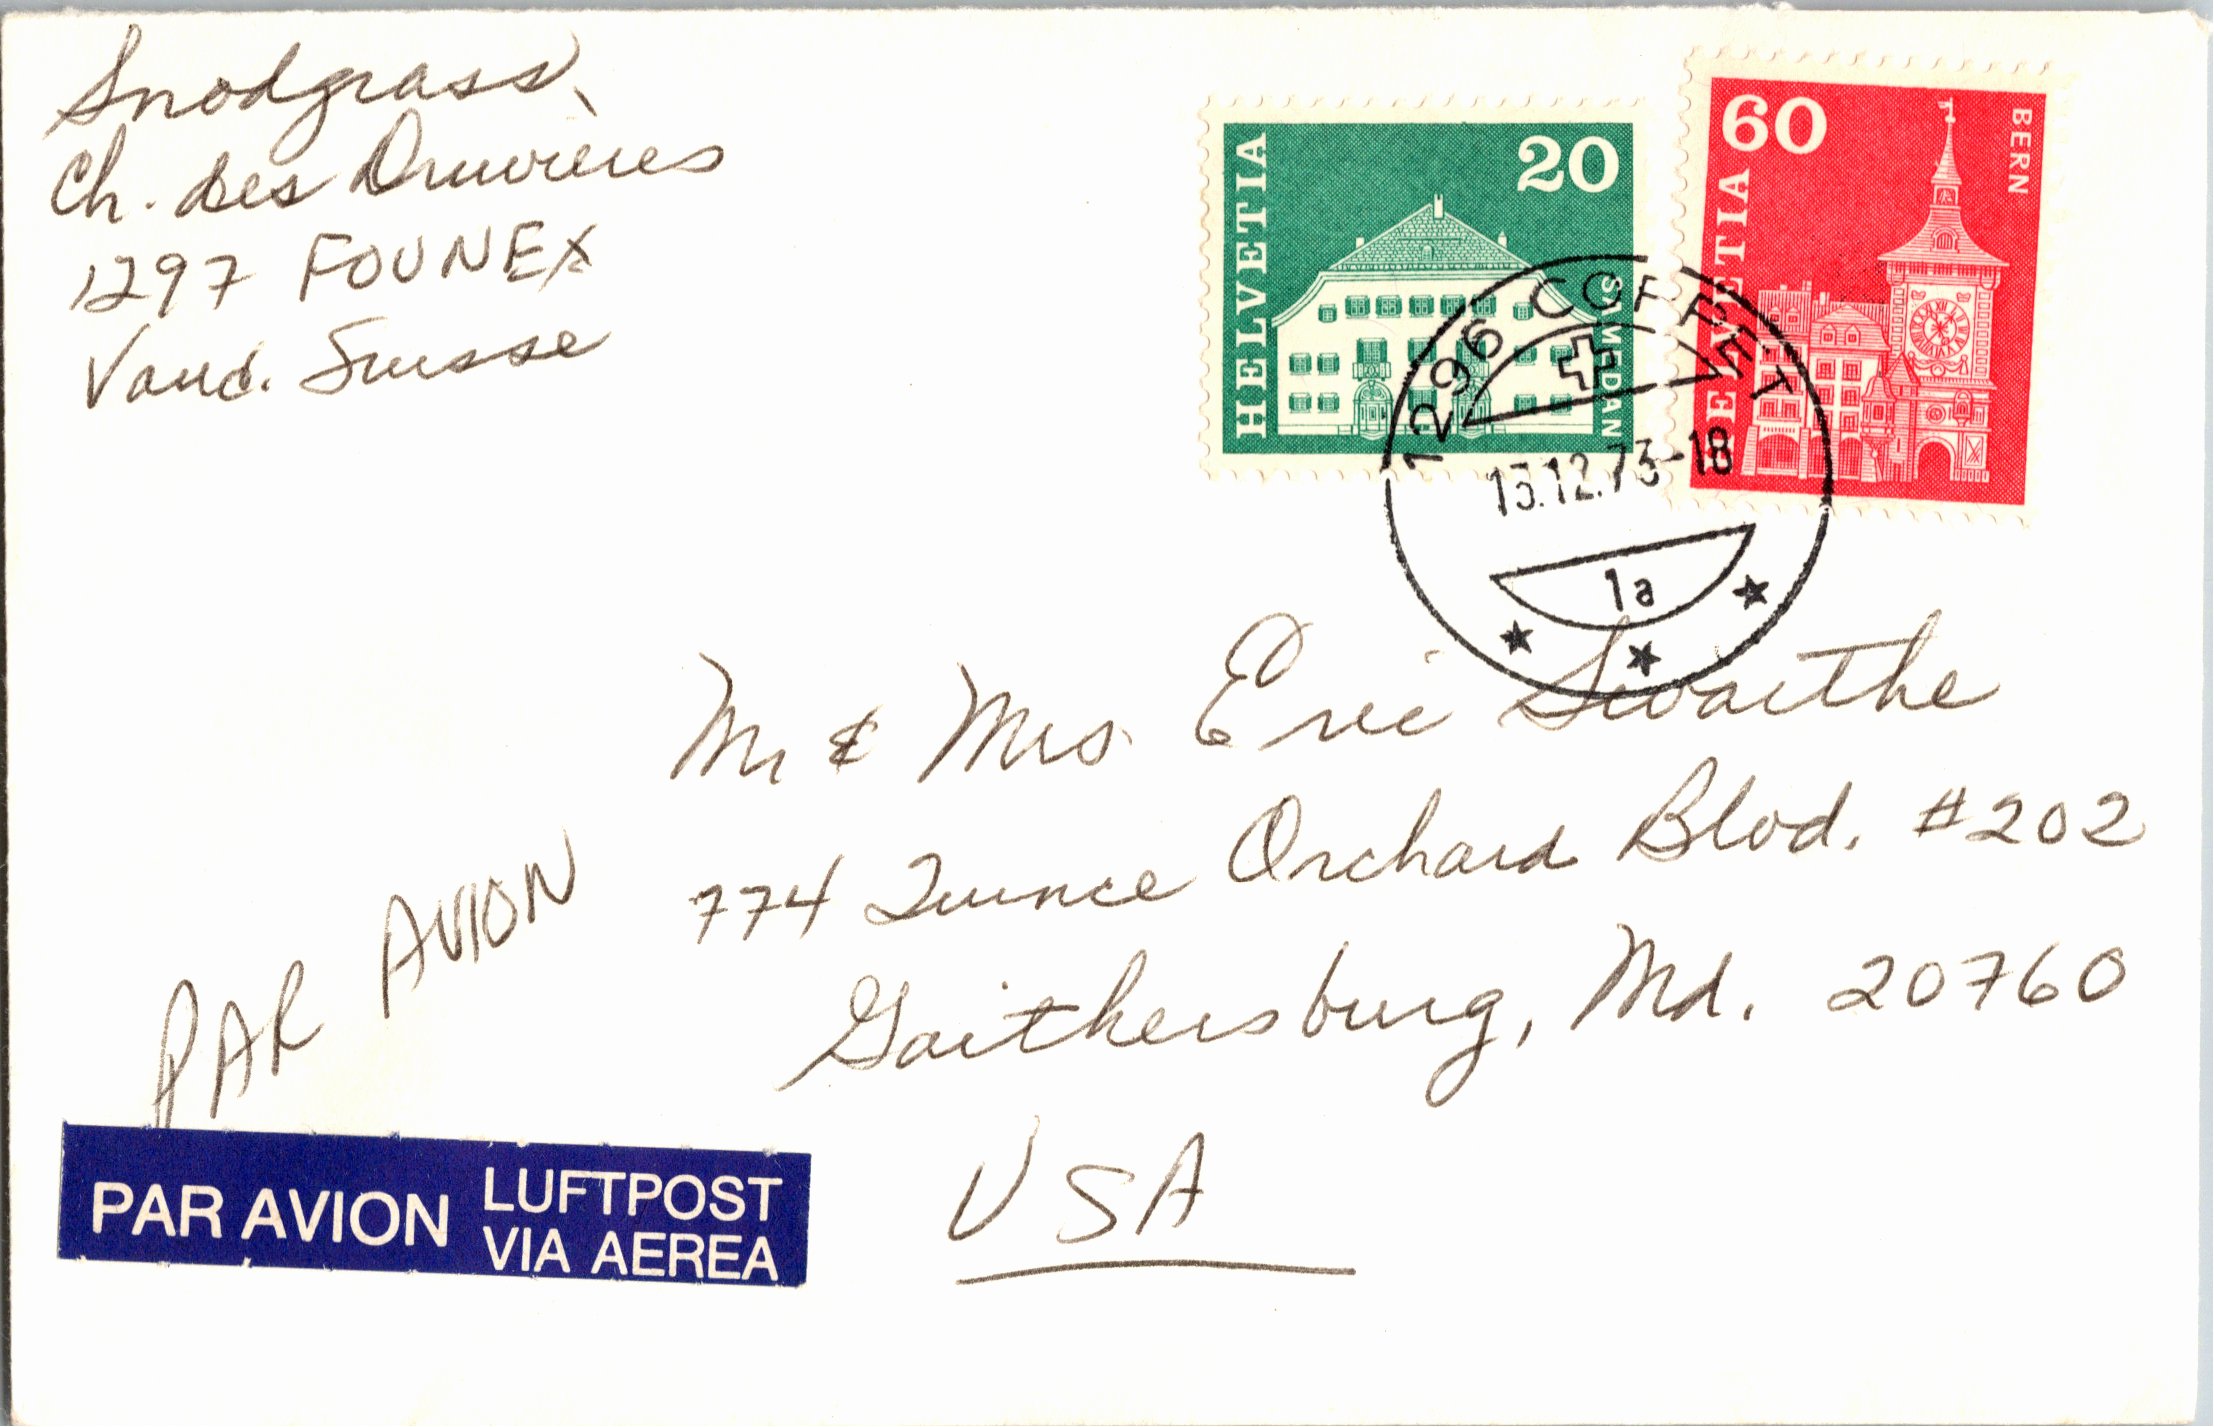 Snodgrass,
Ch. des
1297 FOUNEX
Vaud. Suisse
HELVETIA
20
SAMEDAN
60
BERN
HELVETIA
1296 COPPET
13.12.73-18
1a
Mr & Mrs. Eric Swaithe
774 Quince Orchard Blvd. #202
Gaithersburg, Md. 20760
USA
PAR AVION
PAR AVION
LUFTPOST
VIA AEREA